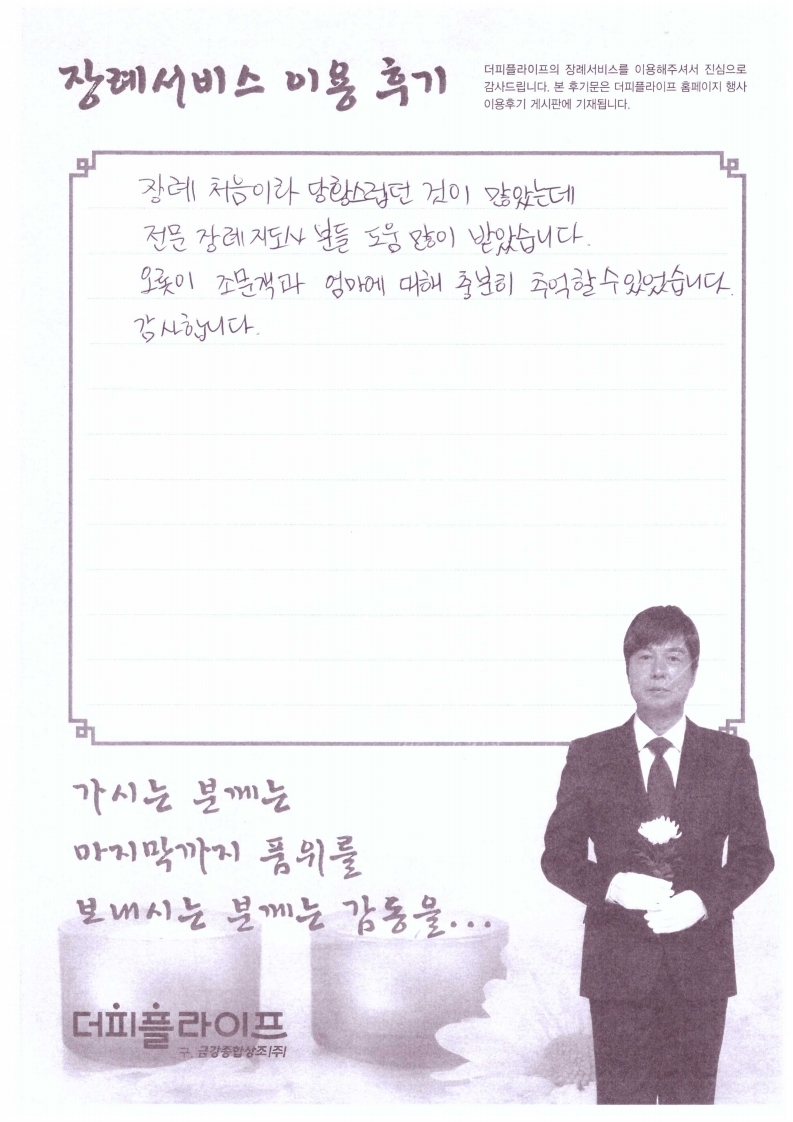 장례서비스 이용 후기
더피플라이프의 장례서비스를 이용해주셔서 진심으로
감사드립니다. 본 후기문은 더피플라이프 홈페이지 행사
이용후기 게시판에 기재됩니다.
장례 처음이라 당황스럽던 것이 많았는데
전문 장례지도사 분들 도움 많이 받았습니다.
오롯이 조문객과 엄마에 대해 충분히 추억할 수 있었습니다.
감사합니다.
가시는 분께는
마지막까지 품위를
보내시는 분께는 감동을...
더피플라이프
구. 금강종합상조(주)